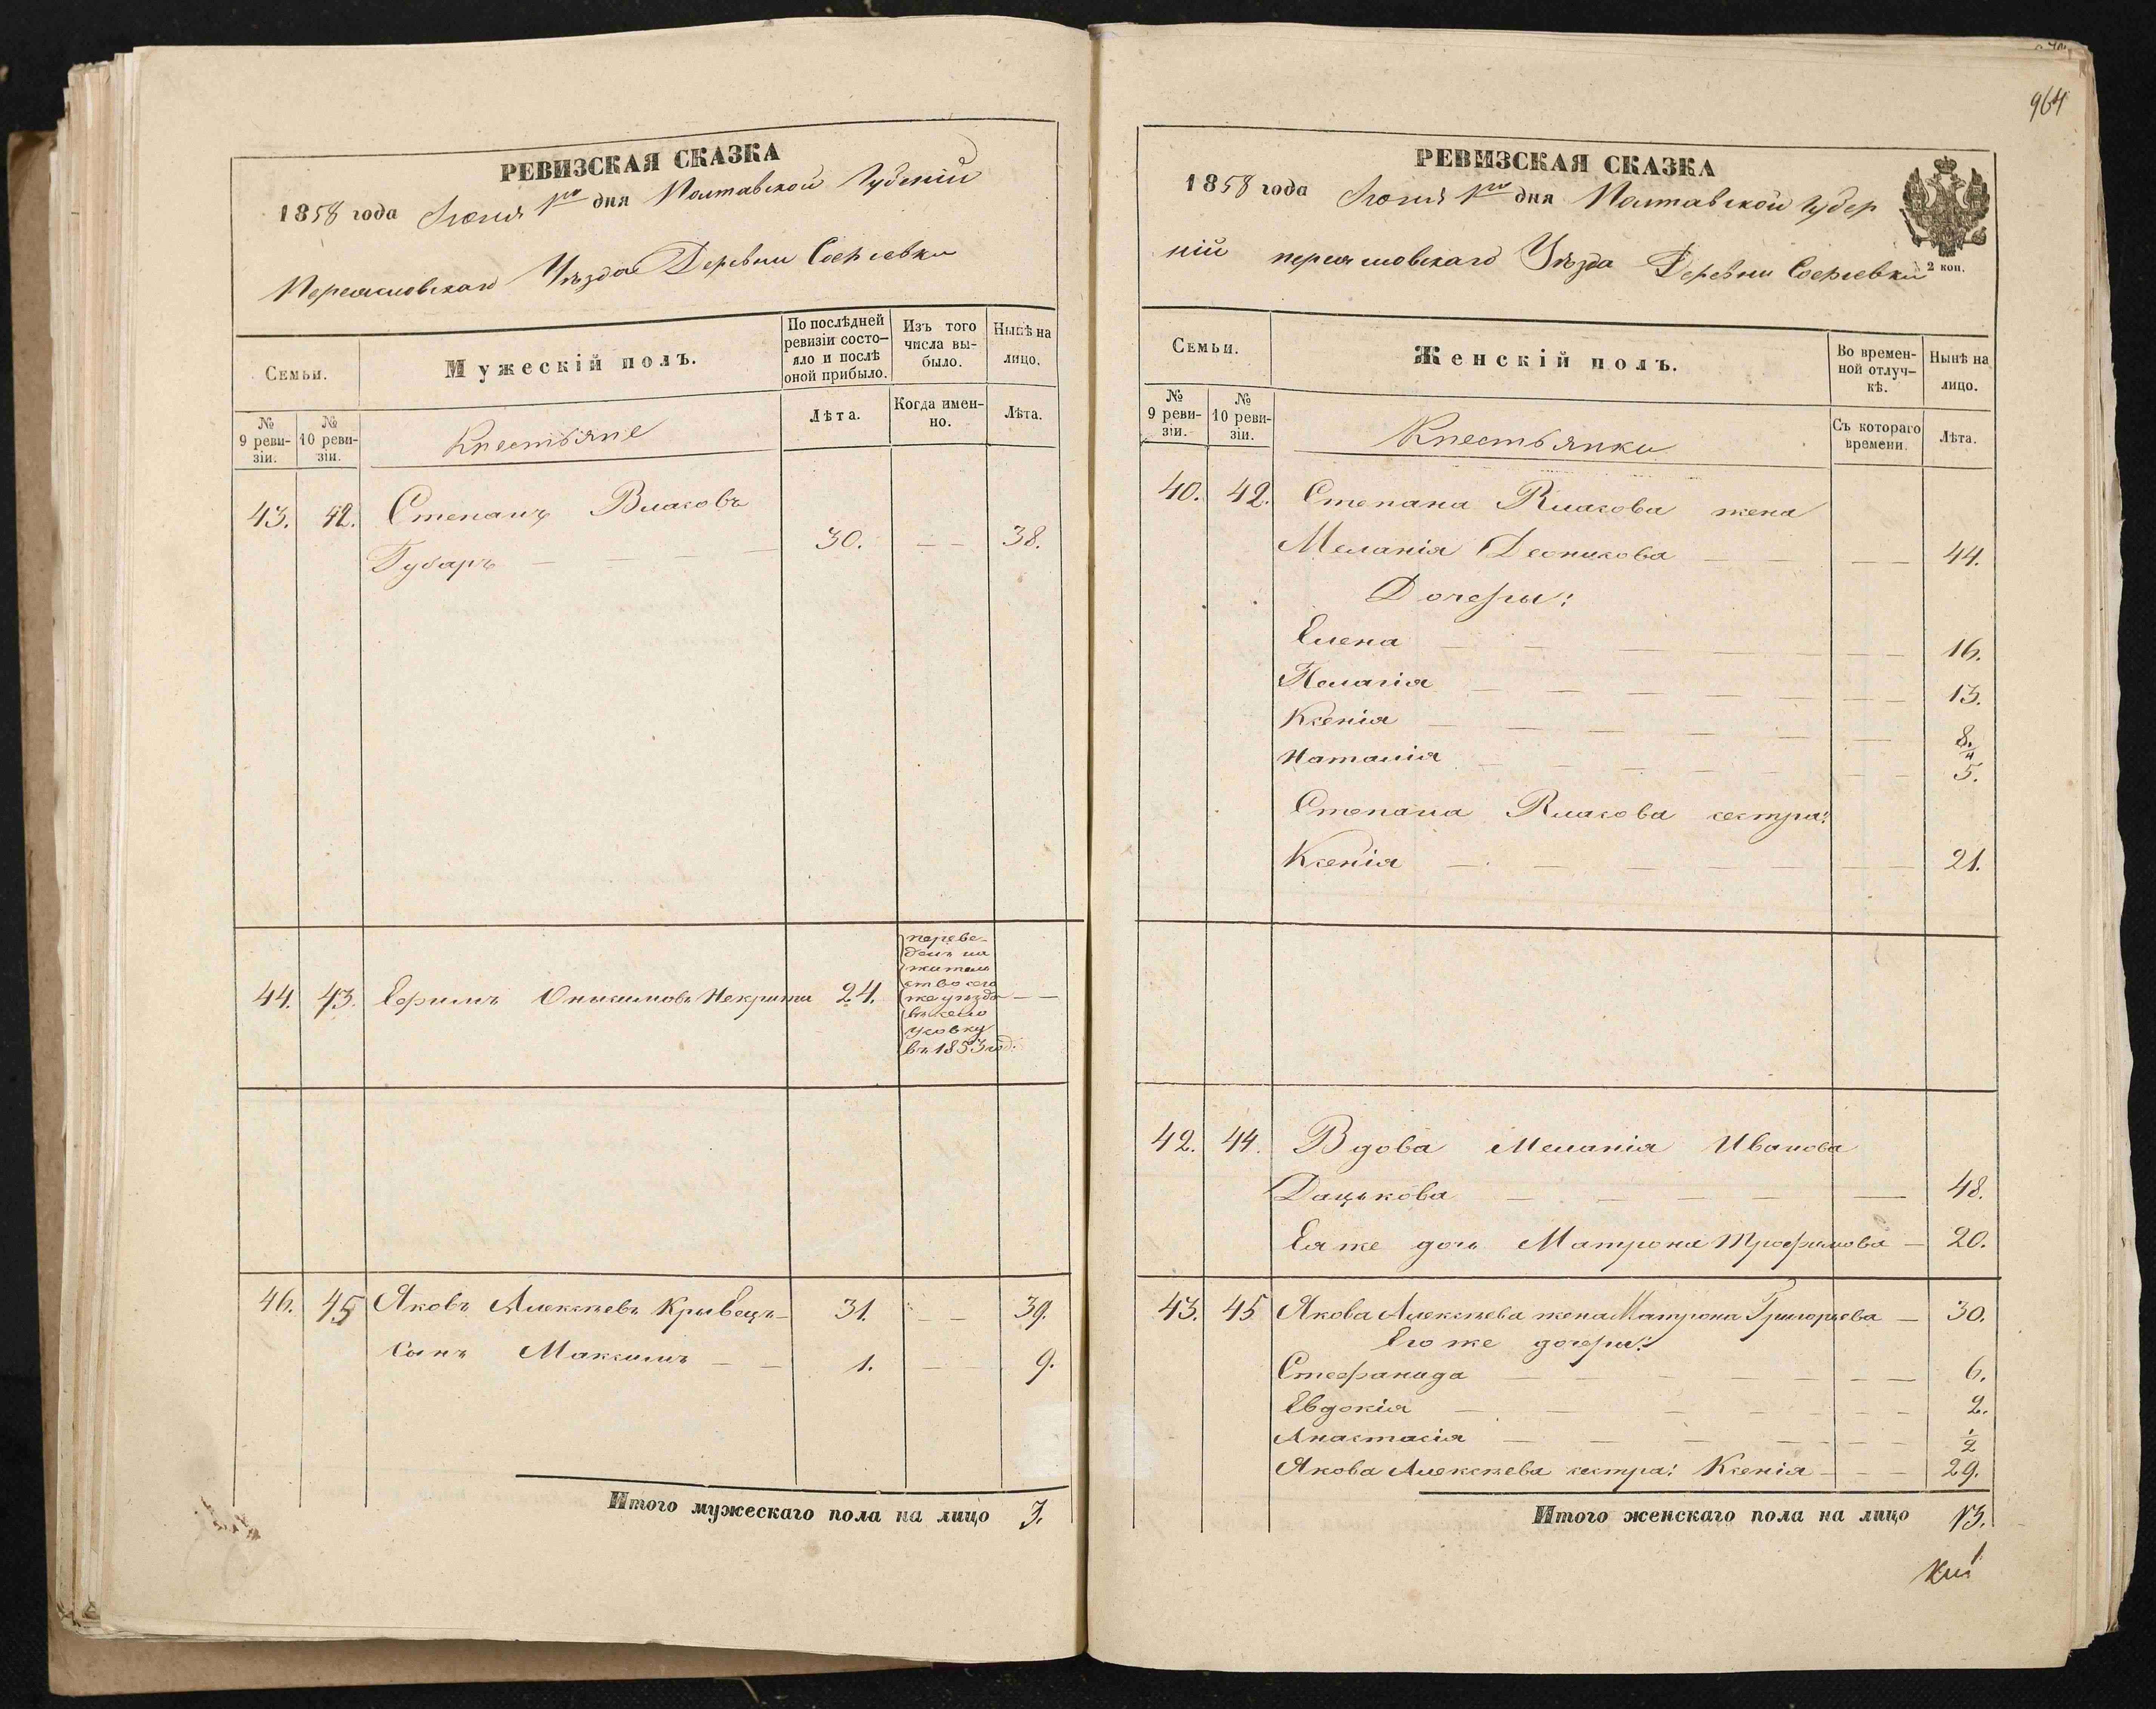 РЕВИЗСКАЯ СКАЗКА
1858 года Іюня 1го дня Полтавской Губерніи
Переясловскаго Уѣзда Деревни Сергіевки
Семьи.
Мужескій полъ.
По послѣдней ревизіи состояло и послѣ оной прибыло.
Изъ того числа выбыло.
Нынѣ на лицо.
№ 9 ревизіи.
№ 10 ревизіи.
Крестьяне
Лѣта.
Когда именно.
Лѣта.
43. 42. Степанъ Власовъ
Губарь — — — — 30. — — 38.
переве-
денъ на
житель
ство сего
же уѣзда
въ село
Усовку
въ 1853 год:
44. 43. Ефимъ Онисимовъ 24. — —
46. 45 Яковъ Алексѣевъ Кривецъ — 31. — — 39.
Сынъ Максимъ — — 1. — — 9.
Итого мужескаго пола на лицо 3.
964
РЕВИЗСКАЯ СКАЗКА
1858 года Іюня 1го дня Полтавской Губер
ніи переясловскаго Уѣзда Деревни Сергіевки
2 коп.
Семьи.
Женскій полъ.
Во временной отлучкѣ.
Нынѣ на лицо.
№ 9 ревизіи.
№ 10 ревизіи.
Крестьянки
Съ котораго времени.
Лѣта.
40. 42. Степана Власова жена
Меланія — — — 44.
Дочери:
Елена — — — 16.
Пелагія — — — 13.
Ксенія — — — 8.
Наталія — — — 5.
Степана Власова сестра:
Ксенія — — — 21.
42. 44. Вдова Меланія Иванова
Дацькова — — — 48.
Ея же дочь Матрона Трофимова — 20.
43. 45 Якова Алексѣева жена Матрона Григорьева — 30.
Его же дочери:
Стефанида — — — 6.
Евдокія — — — 2.
Анастасія — — — 1/2
Якова Алексѣева сестра: Ксенія — — — 29.
Итого женскаго пола на лицо 13.